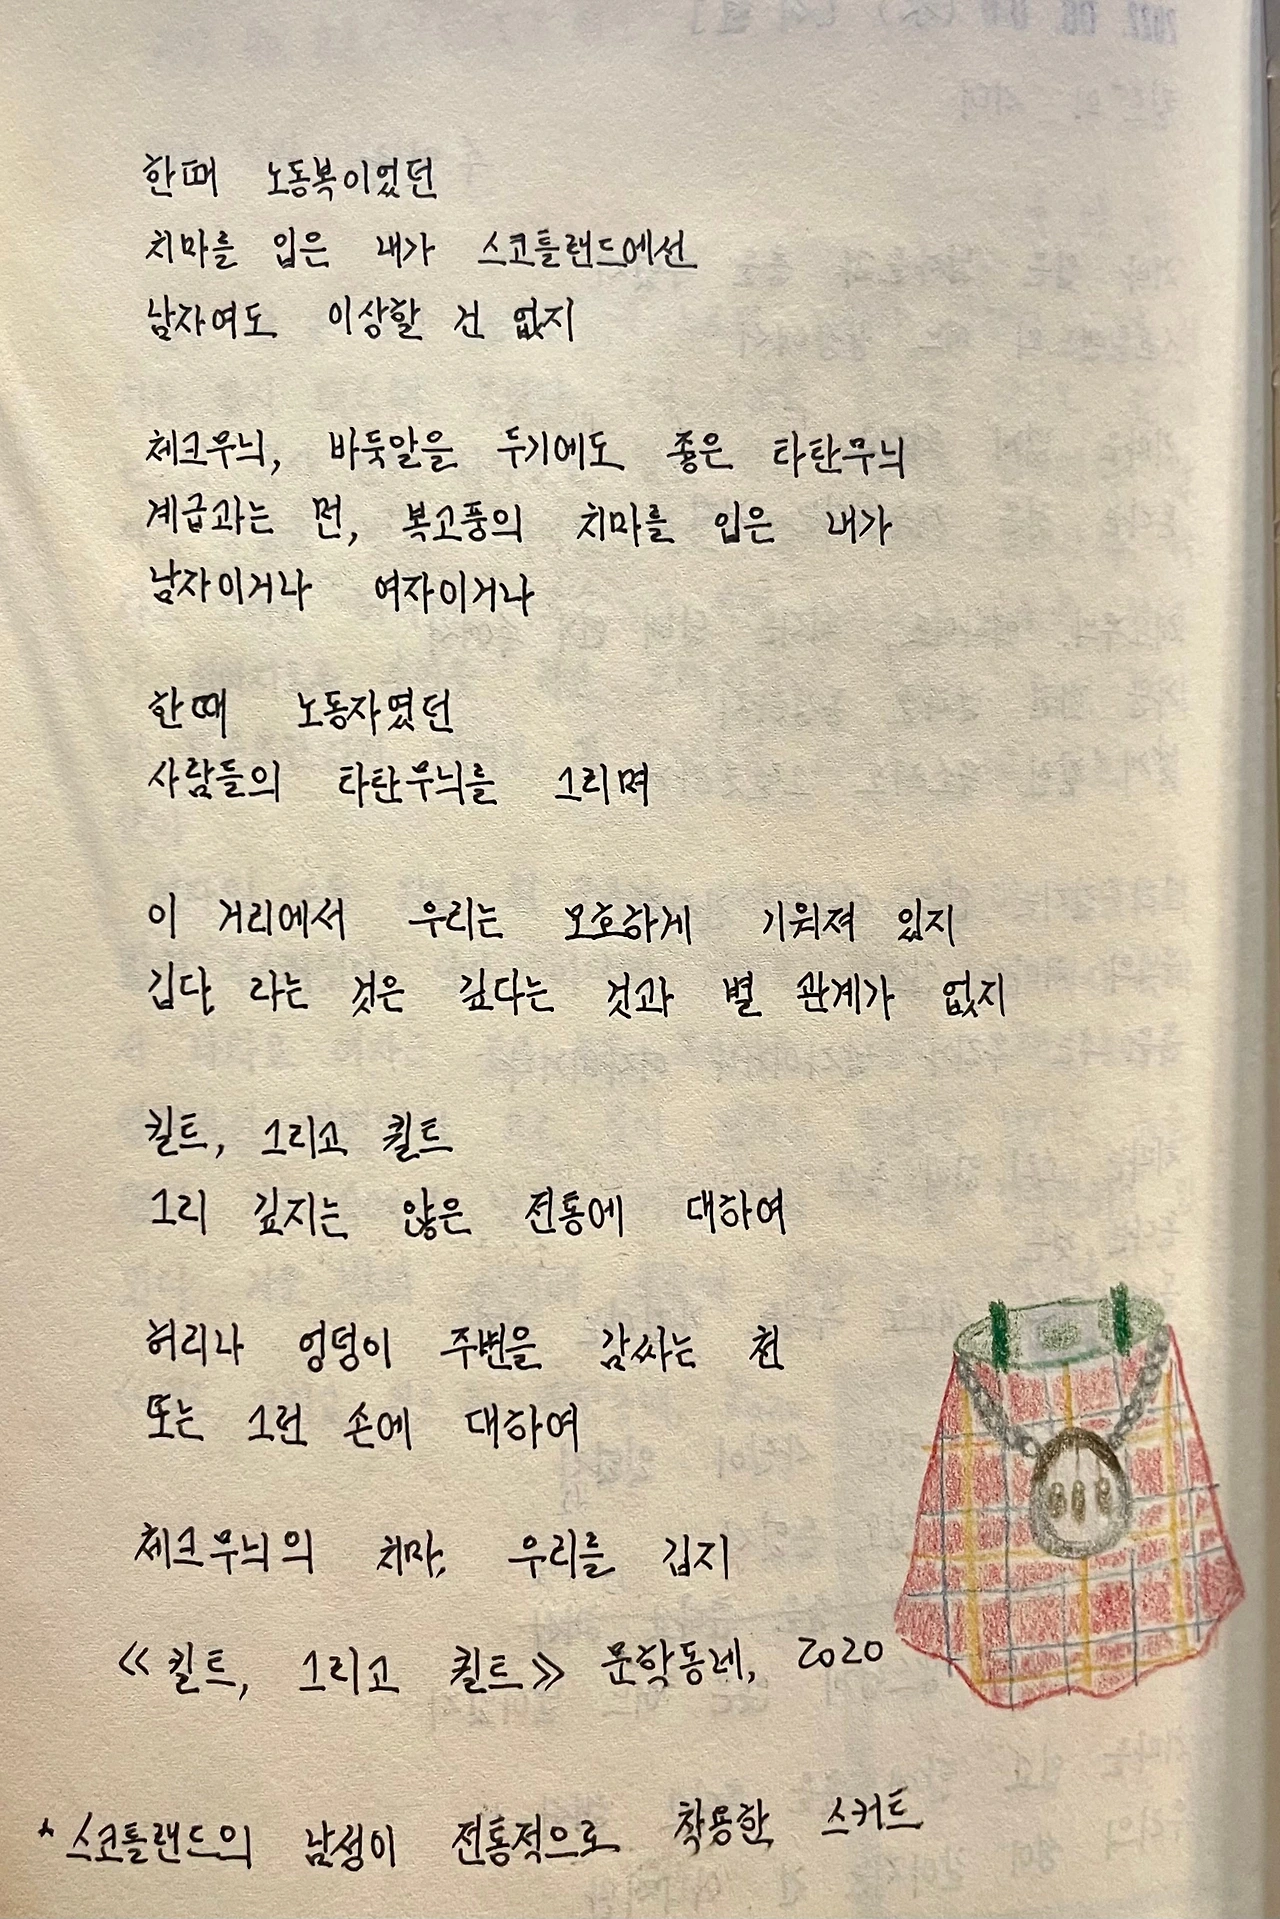 한때 노동복이었던
치마를 입은 내가 스코틀랜드에선
남자여도 이상할 건 없지
체크무늬, 바둑알을 두기에도 좋은 타탄무늬
계급과는 먼, 복고풍의 치마를 입은 내가
남자이거나 여자이거나
한때 노동자였던
사람들의 타탄무늬를 그리며
이 거리에서 우리는 모호하게 기워져 있지
깁다 라는 것은 깊다는 것과 별 관계가 없지
킬트, 그리고 퀼트
그리 깊지는 않은 전통에 대하여
허리나 엉덩이 주변을 감싸는 천
또는 그런 손에 대하여
체크무늬의 치마, 우리를 깁지
≪킬트, 그리고 퀼트≫ 문학동네, 2020
* 스코틀랜드의 남성이 전통적으로 착용한 스커트